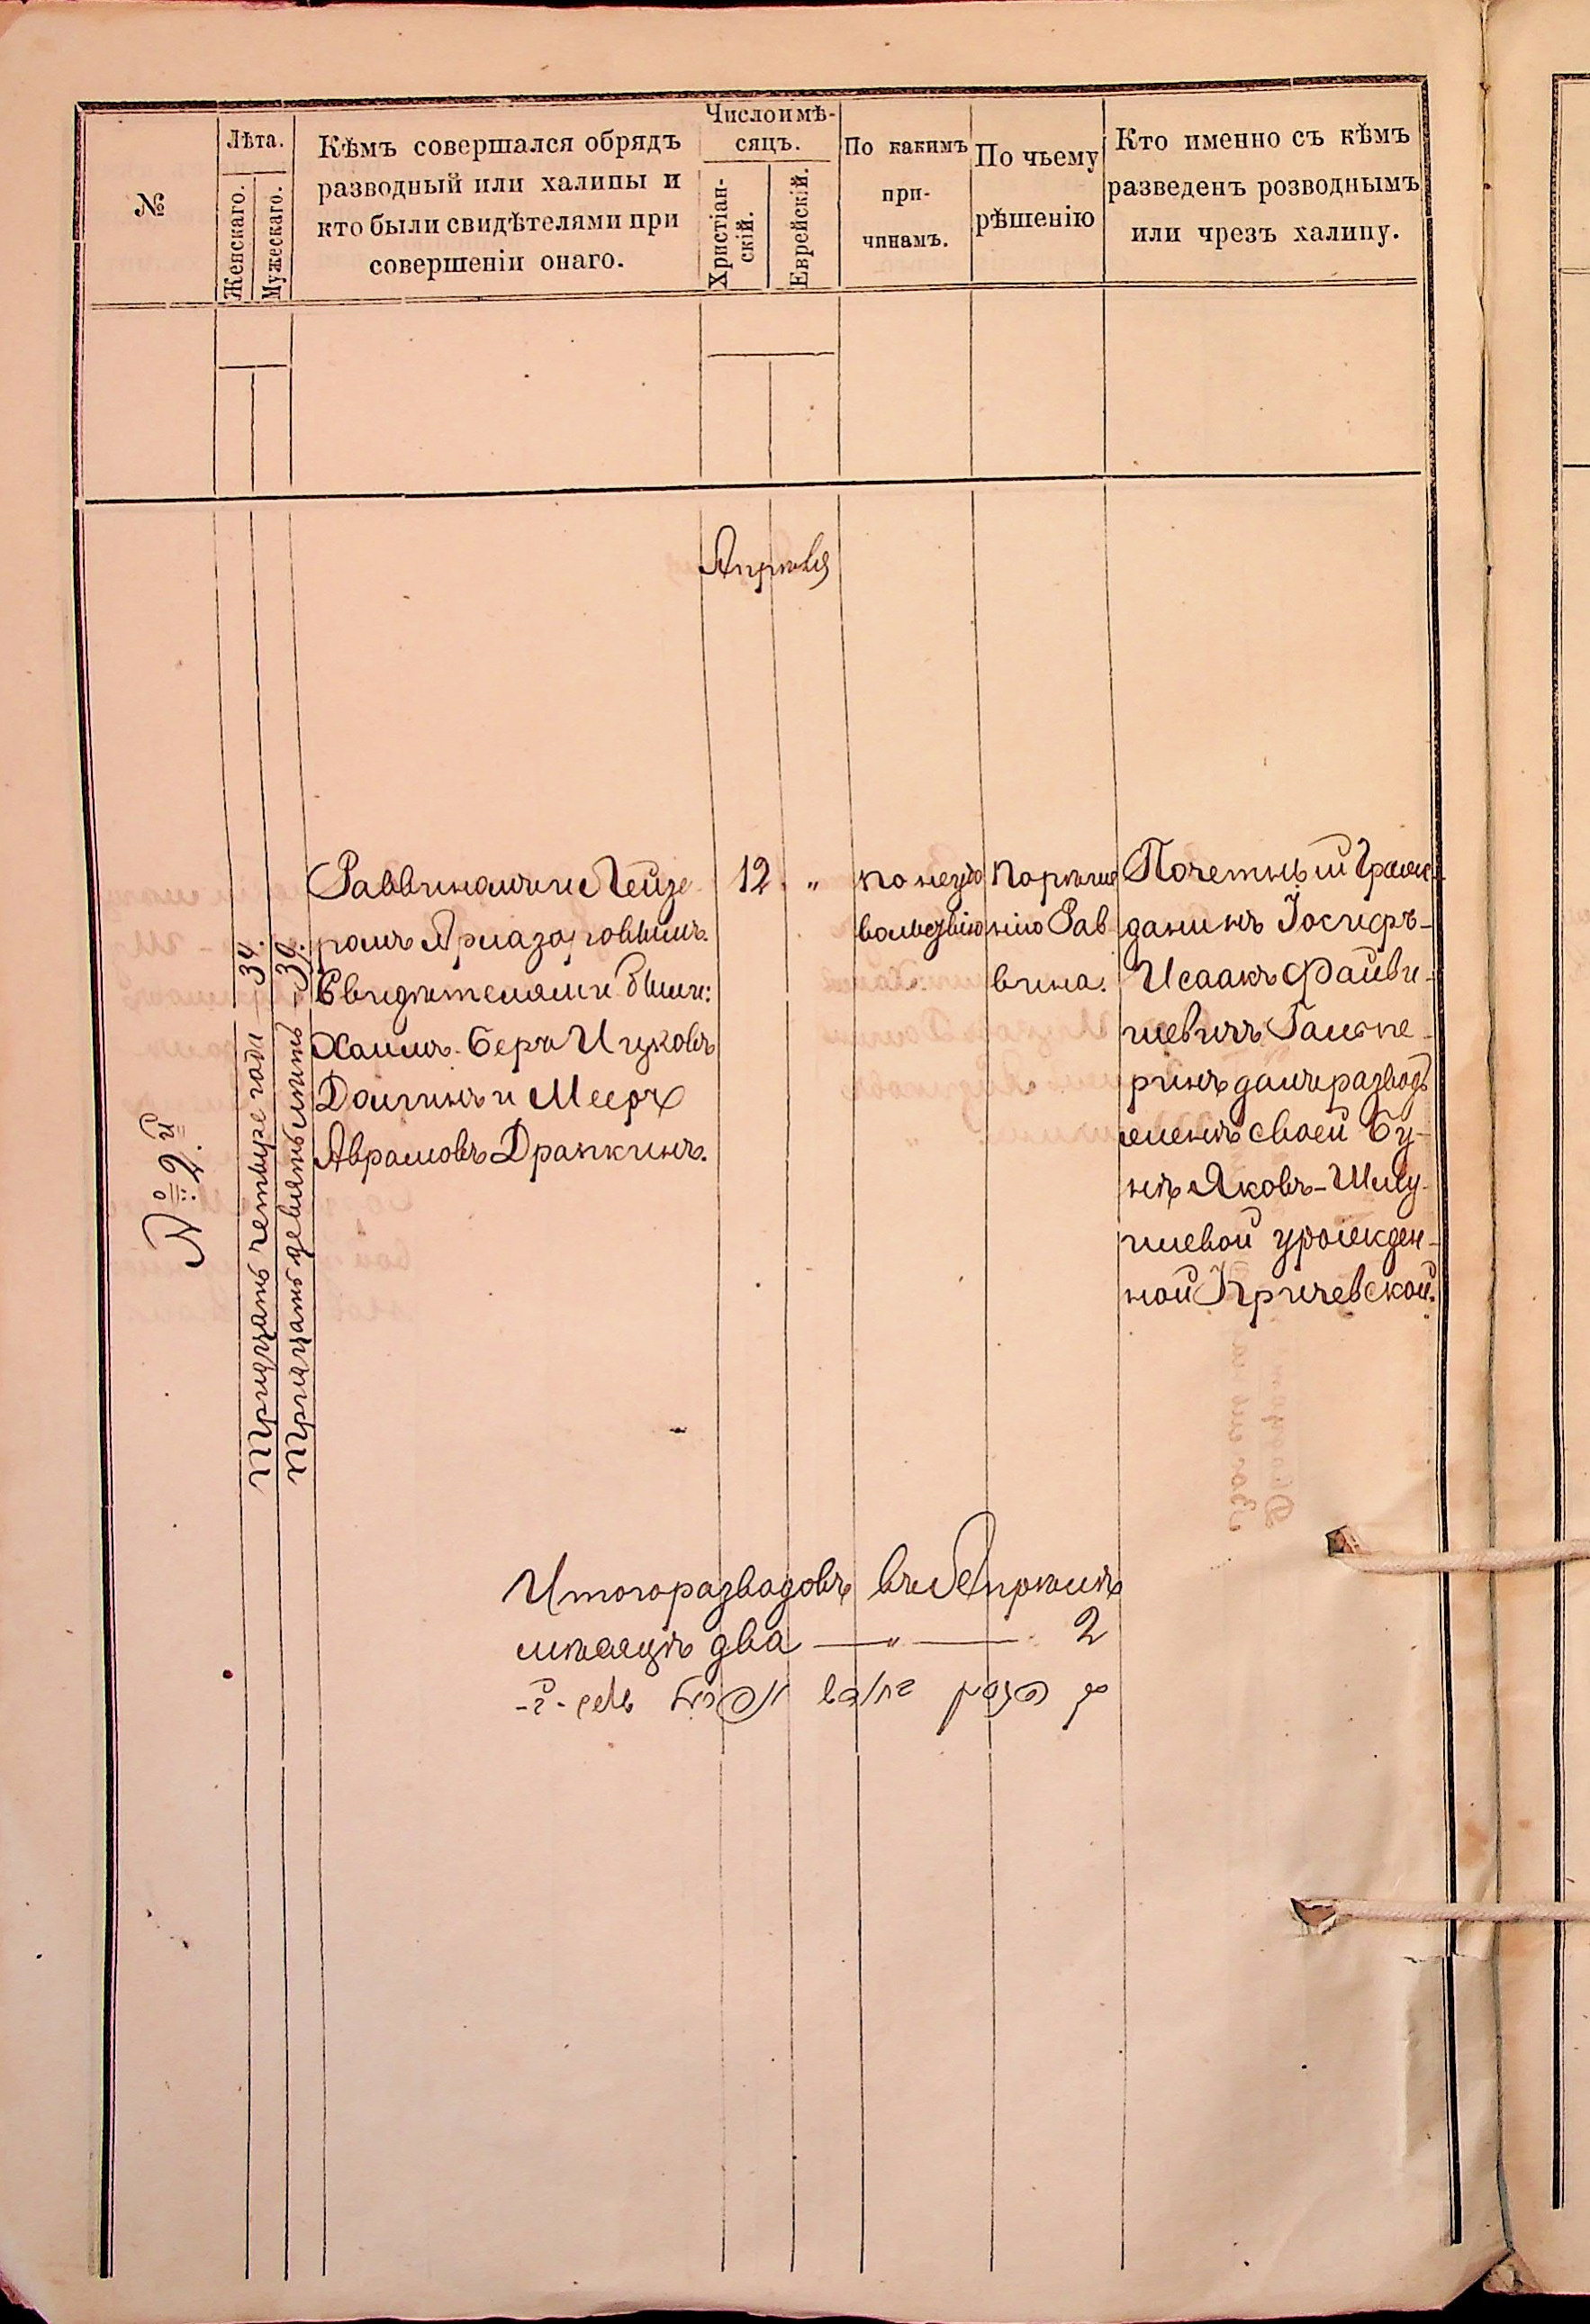 №
Лѣта.
Женскаго.
Мужескаго.
Кѣмъ совершался обрядъ
разводный или халицы и
кто были свидѣтелями при
совершеніи онаго.
Число и мѣ-
сяцъ.
Христіан-
скій.
Еврейскій.
По какимъ
при-
чинамъ.
По чьему
рѣшенію
Кто именно съ кѣмъ
разведенъ розводнымъ
или чрезъ халицу.
Апрѣля
№ 2й
Тридцать четыре года — 34.
Тридцать девять лѣтъ — 39.
Раввиномъ
Свидѣтелями были:
Хаимъ-Беръ Ицковъ
Долгинъ и Мееръ
Аврамовъ Драпкинъ.
12 „
по неудо
вольствію
по рѣше
нію Рав
вина.
Почетный Граж-
данинъ Іосифъ-
Исаакъ Файви-
шевичъ Гальпе-
ринъ далъ разводъ
женѣ своей Бу-
нѣ Яковъ-Шлу-
мевой урожден-
ной Кричевской.
Итого разводовъ въ Апрѣлѣ
мѣсяцѣ два — „ — 2